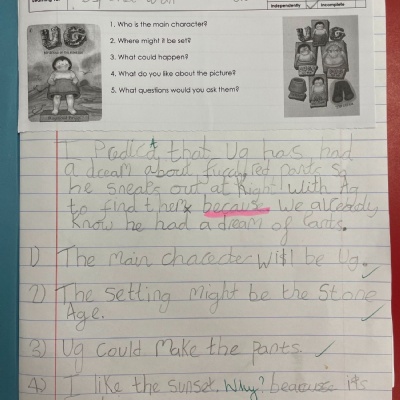 Independently
Incomplete
UG
1. Who is the main character?
2. Where might it be set?
3. What could happen?
4. What do you like about the picture?
5. What questions would you ask them?
UG
I Predict that Ug has had
a dream about furry red pants so
he sneaks out at night with Ag
to find them because we already
know he had a dream of Pants.
1) The main charecter will be Ug.
2) The setting might be the Stone
Age.
3) Ug could make the pants.
4) I like the sunset. Why? beacause its